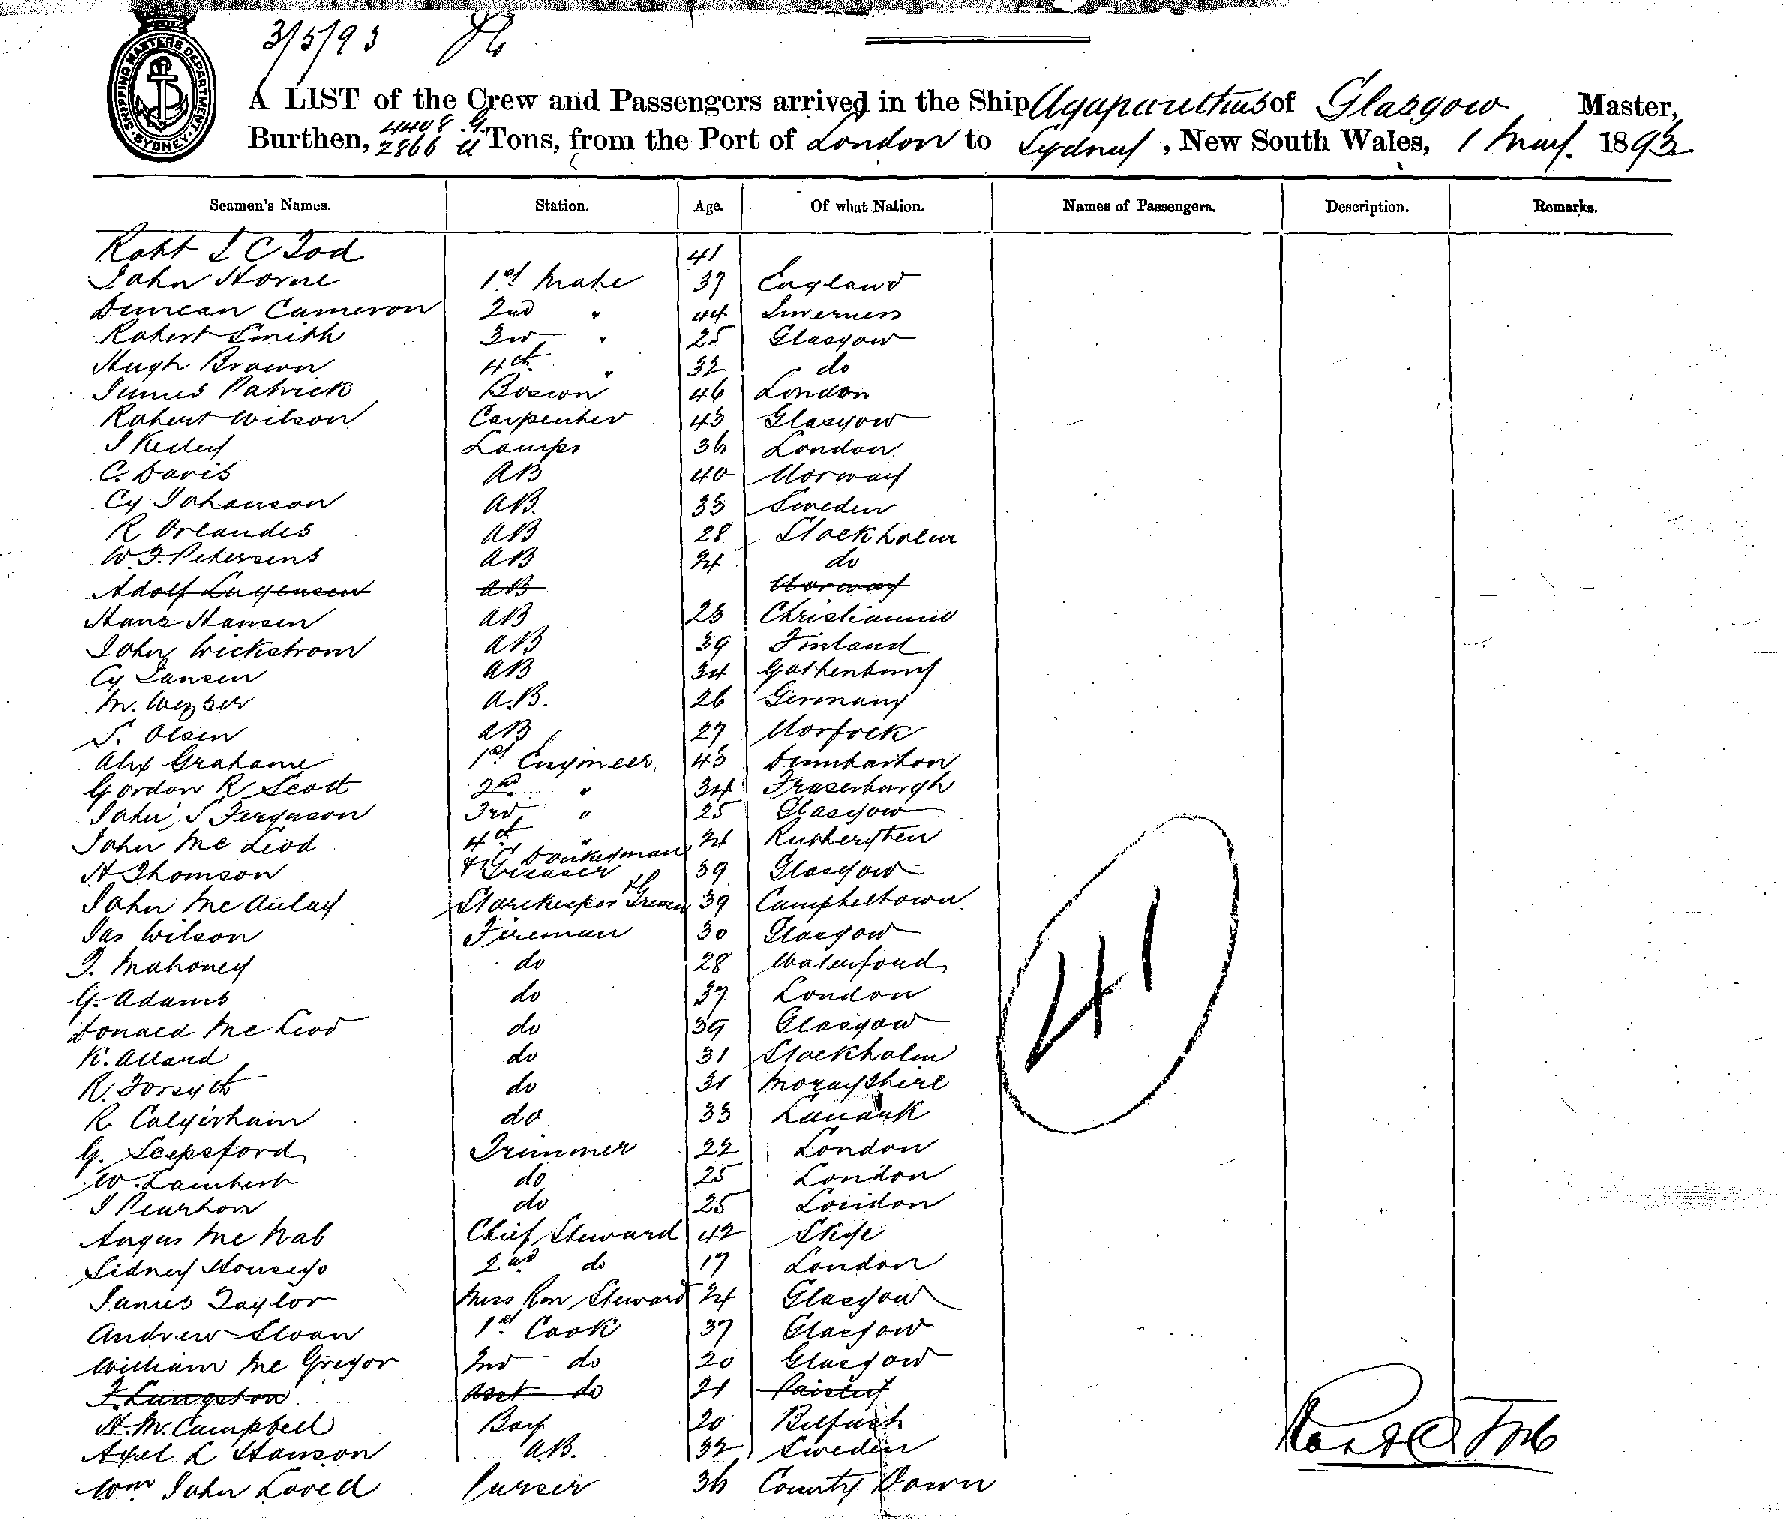 SHIPPING MASTERS DEPARTMENT SYDNEY
3/5/93
A LIST of the Crew and Passengers arrived in the Ship Agapanthus of Glasgow Master,
Burthen, 4408 G. 2866 Tons, from the Port of London to Sydney, New South Wales, 1 May. 1893
Seamen's Names. Station. Age. Of what Nation. Names of Passengers. Description. Remarks.
Robt C Tod 41
John Horne 1st Mate 37 England
Duncan Cameron 2nd " 44 Inverness
Robert Smith 3rd " 25 Glasgow
Hugh Brown 4th " 32 do
James Patrick Bosun 46 London
Robert Wilson Carpenter 43 Glasgow
Lamps 36 London
C. Davis AB 40 Norway
Cy Johanson AB. 33 Sweden
R Orlandes AB 28 Stockholm
W. F. Petersens AB 24 do
Adolf AB Norway
Hans Hansen AB 23 Christiania
John Wickstrom AB 39 Finland
Cy Jansen AB 34 Gothenburg
M. Weyzer A.B. 26 Germany
S. Olsen AB 27
Alex Grahame 1st Engineer 43 Dumbarton
Gordon R Scott 2nd " 34 Fraserburgh
John S Ferguson 3rd " 25 Glasgow
John Mc Leod 4th " 24 Rutherglen
H Thomson Donkeyman & Greaser 39 Glasgow
John Mc Aulay Storekeeper & Greaser 39 Campbeltown.
Jas Wilson Fireman 30 Glasgow
J. Mahoney do 28 Waterford
G. Adams do 37 London
Donald Mc Leod do 39 Glasgow
K. Allard do 31 Stockholm
R. Forsyth do 31 Morayshire
R do 33 Lanark
41
G. Trimmer 22 London
W. Lambert do 25 London
J do 25 London
Angus Mc Nab Chief Steward 42 Skye
Sidney Housego 2nd do 17 London
James Taylor Mess Rm Steward 24 Glasgow
Andrew Sloan 1st Cook 37 Glasgow
William Mc Gregor 2nd do 20 Glasgow
F. Langston Asst do 21 Paisley
H. M. Campbell Boy 20 Belfast
Axel L Hanson A.B. 32 Sweden
Robt C Tod
Wm John Lovell Purser 36 County Down